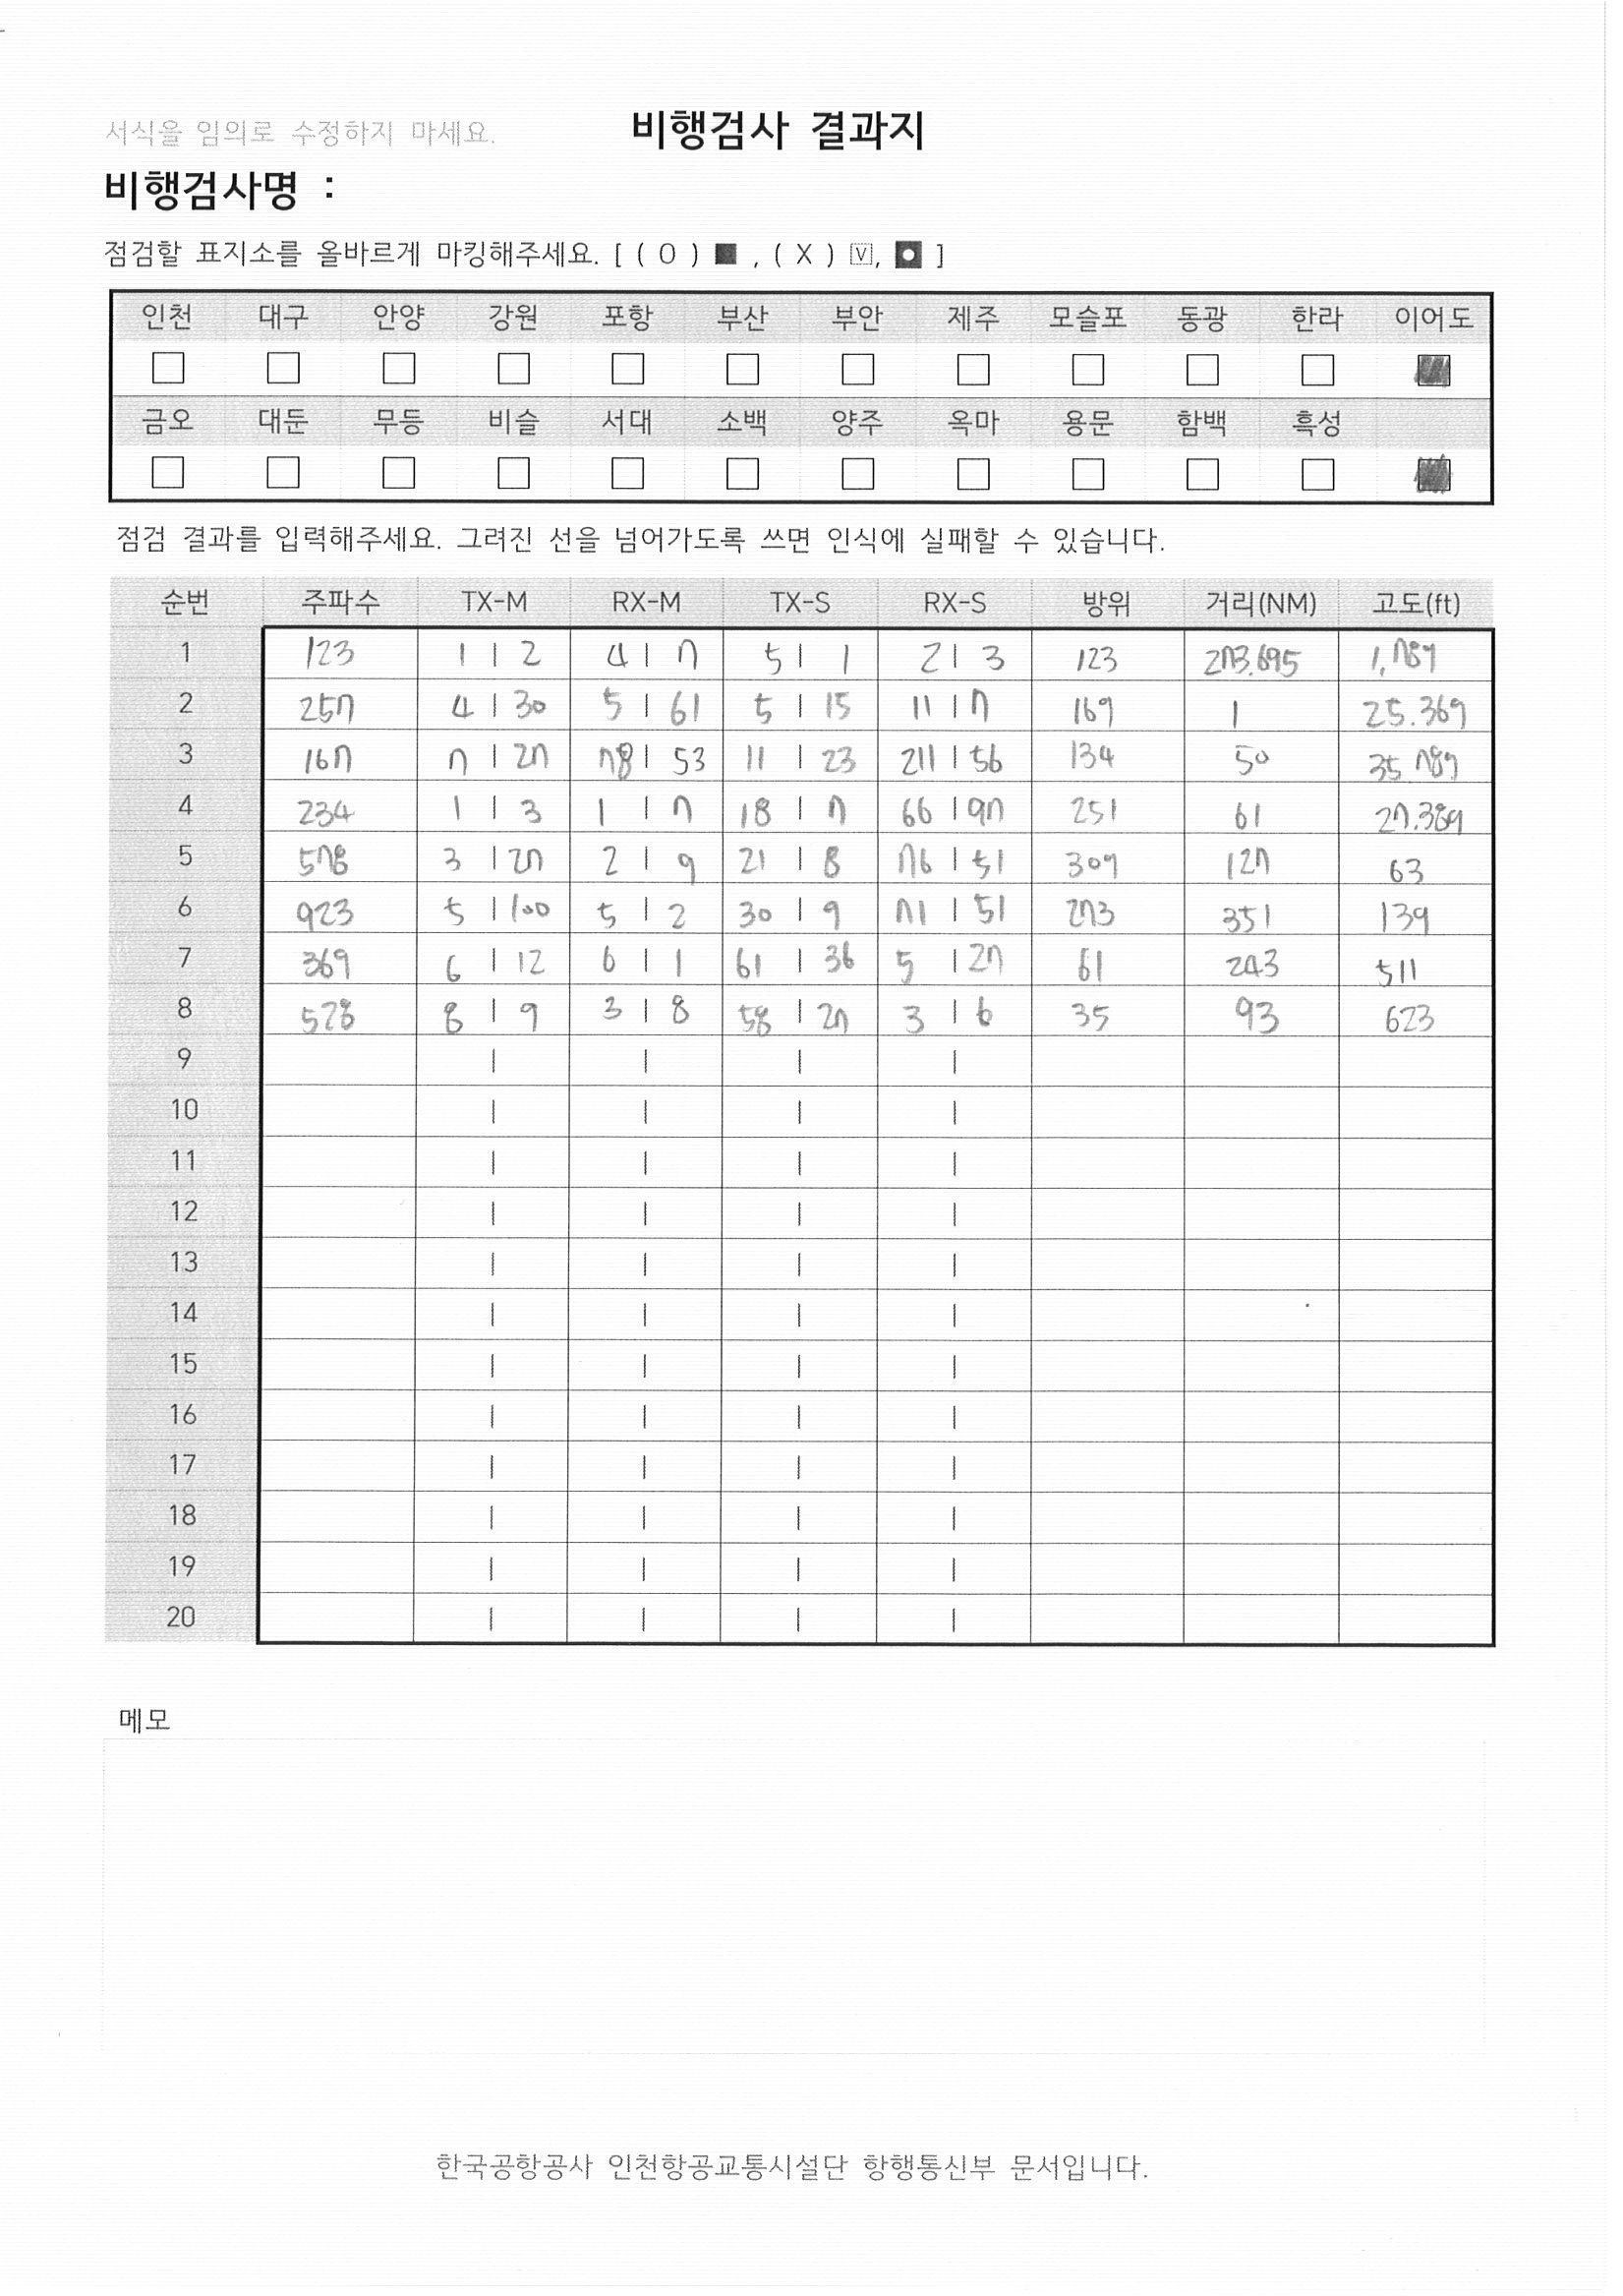 서식을 임의로 수정하지 마세요.
비행검사 결과지
비행검사명 :
점검할 표지소를 올바르게 마킹해주세요. [ ( O ) ■ , ( X ) ☑, ◘ ]
인천 대구 안양 강원 포항 부산 부안 제주 모슬포 동광 한라 이어도
금오 대둔 무등 비슬 서대 소백 양주 옥마 용문 함백 흑성
점검 결과를 입력해주세요. 그려진 선을 넘어가도록 쓰면 인식에 실패할 수 있습니다.
순번 주파수 TX-M RX-M TX-S RX-S 방위 거리(NM) 고도(ft)
1 123 1 | 2 4 | 7 5 | 1 2 | 3 123 273.695 1,789
2 257 4 | 30 5 | 61 5 | 15 11 | 7 169 1 25.369
3 167 7 | 27 78 | 53 11 | 23 211 | 56 134 50 35.789
4 234 1 | 3 1 | 7 18 | 7 66 | 97 251 61 27.389
5 578 3 | 27 2 | 9 21 | 8 76 | 51 309 127 63
6 923 5 | 100 5 | 2 30 | 9 71 | 51 273 351 139
7 369 6 | 12 6 | 1 61 | 36 5 | 27 61 243 511
8 528 8 | 9 3 | 8 58 | 27 3 | 6 35 93 623
9 | | | |
10 | | | |
11 | | | |
12 | | | |
13 | | | |
14 | | | |
15 | | | |
16 | | | |
17 | | | |
18 | | | |
19 | | | |
20 | | | |
메모
한국공항공사 인천항공교통시설단 항행통신부 문서입니다.